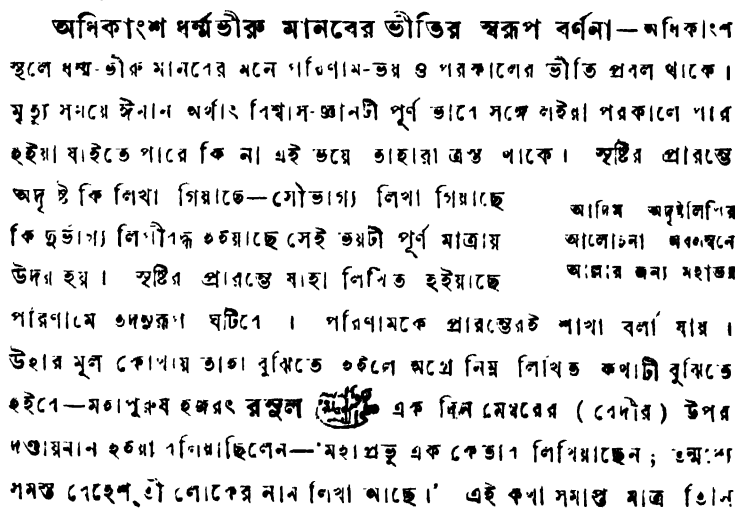 অধিকাংশ ধর্ম্মভীরু মানবের ভীতির স্বরূপ বর্ণনা—অধিকাংশ
স্থলে ধর্ম্ম-ভীরু মানবের মনে পরিণাম-ভয় ও পরকালের ভীতি প্রবল থাকে।
মৃত্যু সময়ে ঈমান অর্থাৎ বিশ্বাস-জ্ঞানটী পূর্ণ ভাবে সঙ্গে লইয়া পরকালে পার
হইয়া যাইতে পারে কি না এই ভয়ে তাহারা ত্রস্ত থাকে। সৃষ্টির প্রারম্ভে
অদৃষ্টে কি লিখা গিয়াছে—সৌভাগ্য লিখা গিয়াছে
কি দুর্ভাগ্য লিপীবদ্ধ হইয়াছে সেই ভয়টী পূর্ণ মাত্রায়
উদয় হয়। সৃষ্টির প্রারম্ভে যাহা লিখিত হইয়াছে
আদিম অদৃষ্টলিপির
আলোচনা অবলম্বনে
আল্লার জন্য মহাভয়
পরিণামে তদনুরূপ ঘটিবে। পরিণামকে প্রারম্ভেরই শাখা বলা যায়।
উহার মূল কোথায় তাহা বুঝিতে হইলে অগ্রে নিম্ন লিখিত কথাটী বুঝিতে
হইবে—মহাপুরুষ হজরৎ রসুল এক দিন মেম্বরের (বেদীর) উপর
দণ্ডায়মান হইয়া বলিয়াছিলেন—'মহাপ্রভু এক কেতাব লিখিয়াছেন; তন্মধ্যে
সমস্ত বেহেশ্‌তী লোকের নাম লিখা আছে।' এই কথা সমাপ্ত মাত্র তিনি